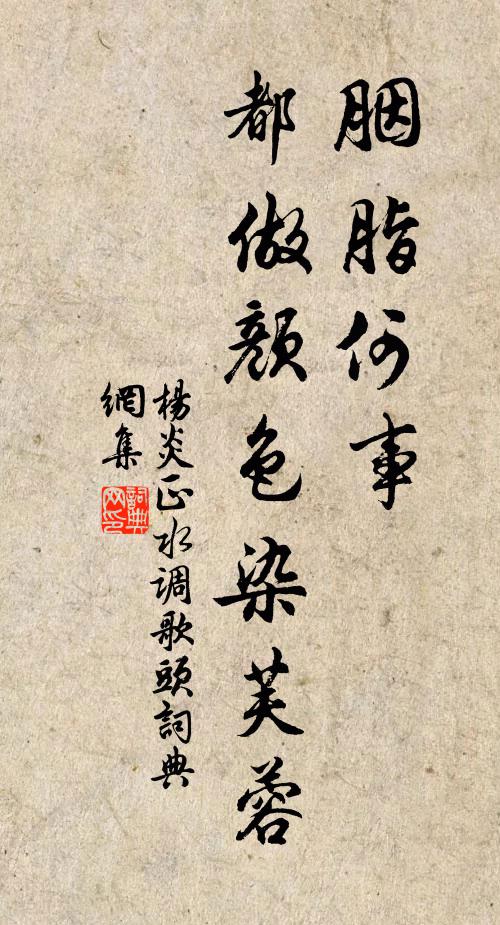 胭脂何事
都做顏色染芙蓉
楊炎正水调歌頭詞典
網集
詞典
网印